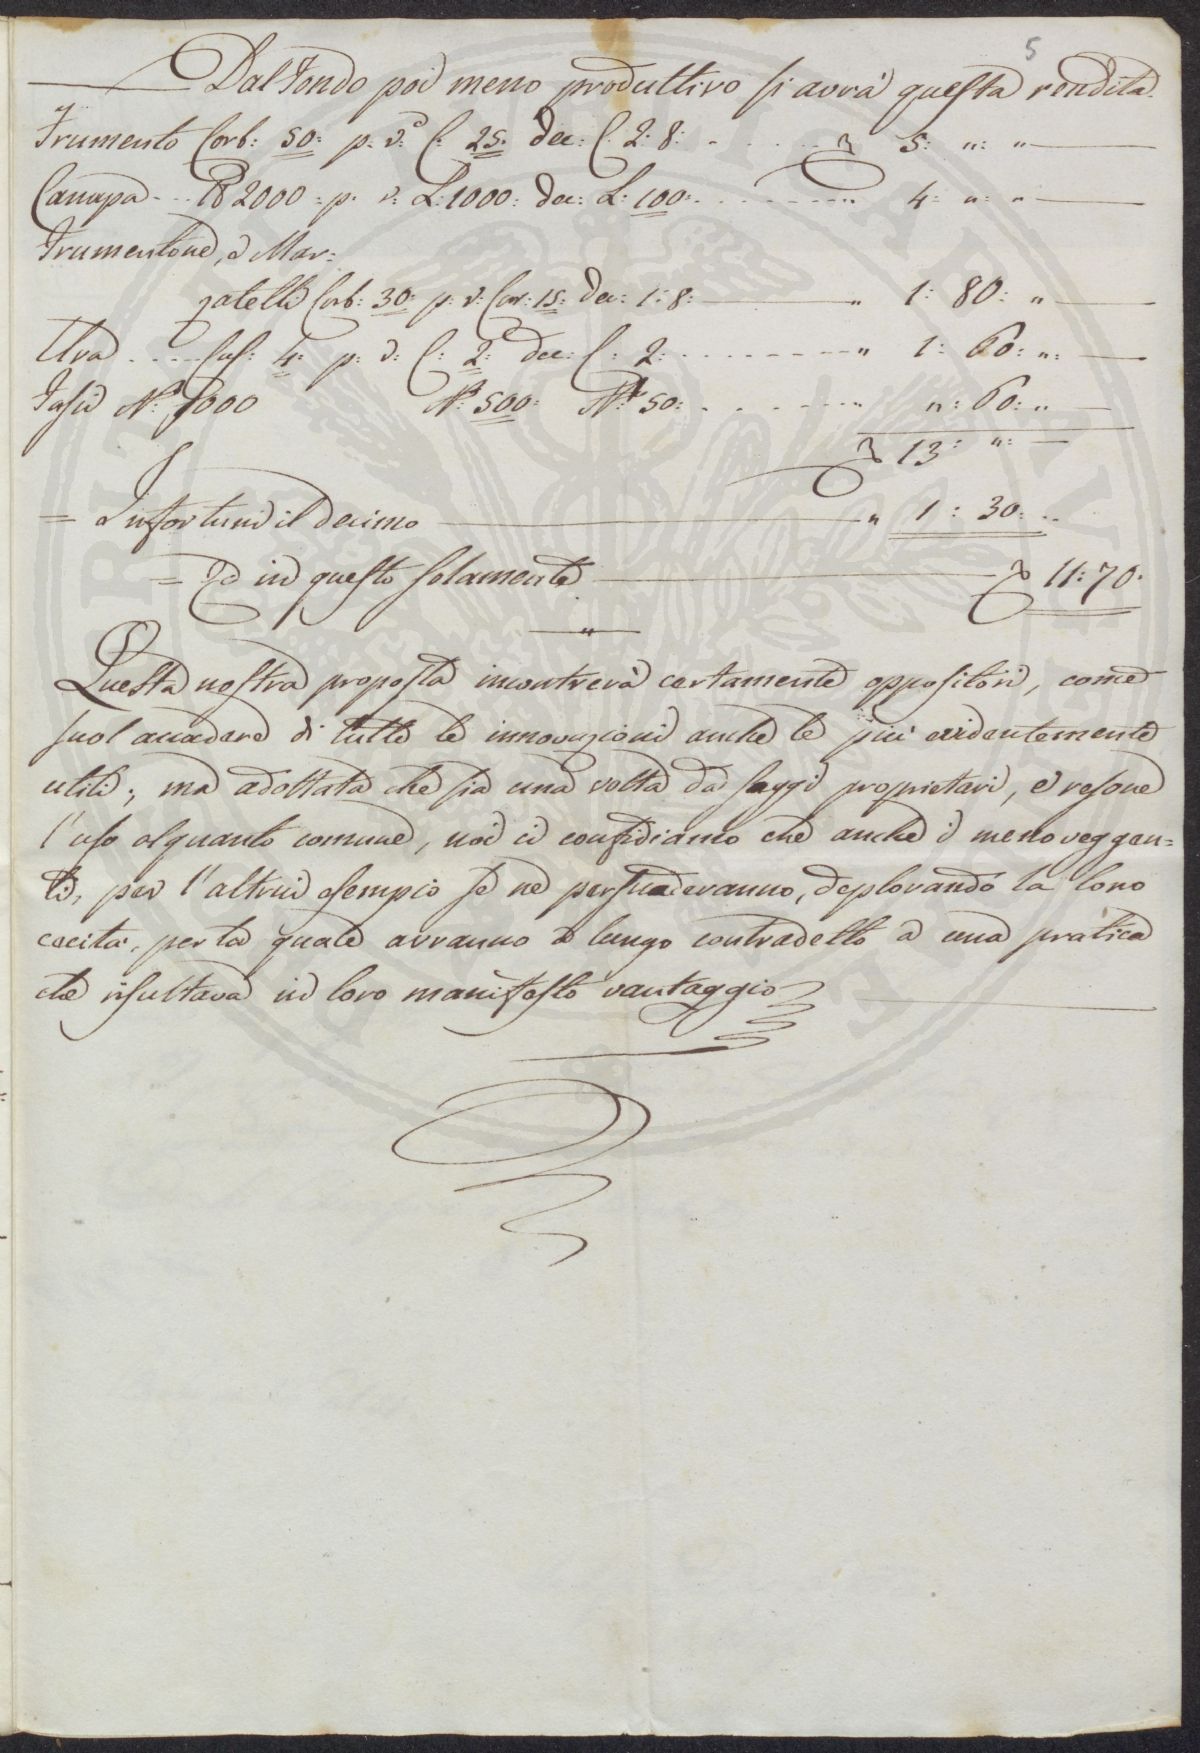 5
Dal Fondo poi meno produttivo si avrà questa rendita.
Frumento Corb: 50: p. v.° C: 25. dec: C. 2: 8: 5: ": "
Canapa 2000: p. v: L: 1000: dec: L: 100: " 4: ": "
Frumentone, e Mar=
zatelli Corb: 30: p. v: Cor: 15: dec: 1: 8: " 1: 80: "
Uva Cas: 4: p. v: C: 2: dec: C: 2: " 1: 60: ":
Fasci N.° 1000 N.° 500: N.° 50: " ": 60: "
13: ":
= Infortuni il decimo " 1: 30:
= E in questo solamente 11: 70:
"
Questa nostra proposta incontrerà certamente oppositori, come
suol accadere di tutte le innovazioni anche le più evidentemente
utili; ma adottata che sia una volta da saggi proprietari, e resone
l'uso alquanto comune, noi ci confidiamo che anche i meno veggen=
ti, per l'altrui esempio se ne persuaderanno, deplorando la loro
cecità, per la quale avranno a lungo contradetto a una pratica
che risultava in loro manifesto vantaggio